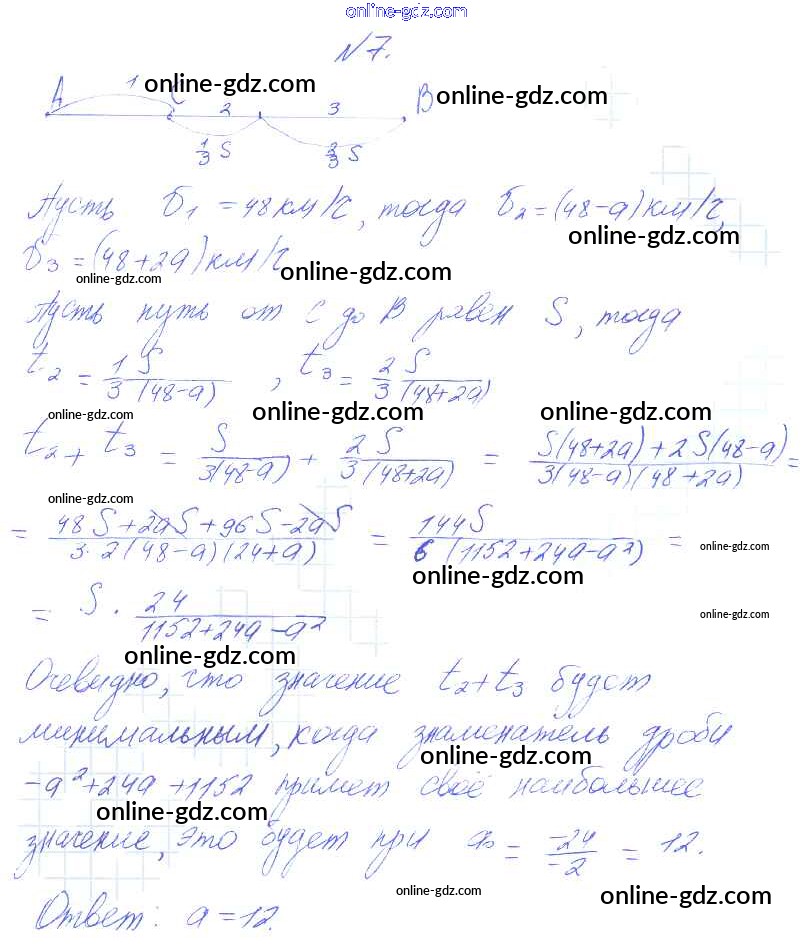 online-gdz.com
№7.
A 1 C 2 3 B
online-gdz.com online-gdz.com
1/3 S 2/3 S
Пусть v1 = 48 км/ч, тогда v2 = (48-a) км/ч,
online-gdz.com
v3 = (48+2a) км/ч
online-gdz.com online-gdz.com
Пусть путь от C до B равен S, тогда
t2 = 1/3 S/(48-a), t3 = 2/3 S/(48+2a)
online-gdz.com online-gdz.com online-gdz.com
t2 + t3 = S/3(48-a) + 2S/3(48+2a) = S(48+2a)+2S(48-a)/3(48-a)(48+2a) =
online-gdz.com
= 48S+2aS+96S-2aS/3·2(48-a)(24+a) = 144S/6(1152+24a-a²) =
online-gdz.com online-gdz.com
= S · 24/1152+24a-a²
online-gdz.com
online-gdz.com
Очевидно, что значение t2+t3 будет
минимальным, когда знаменатель дроби
online-gdz.com
-a²+24a+1152 примет своё наибольшее
online-gdz.com
значение, это будет при a0 = -24/-2 = 12.
online-gdz.com online-gdz.com
Ответ: a=12.